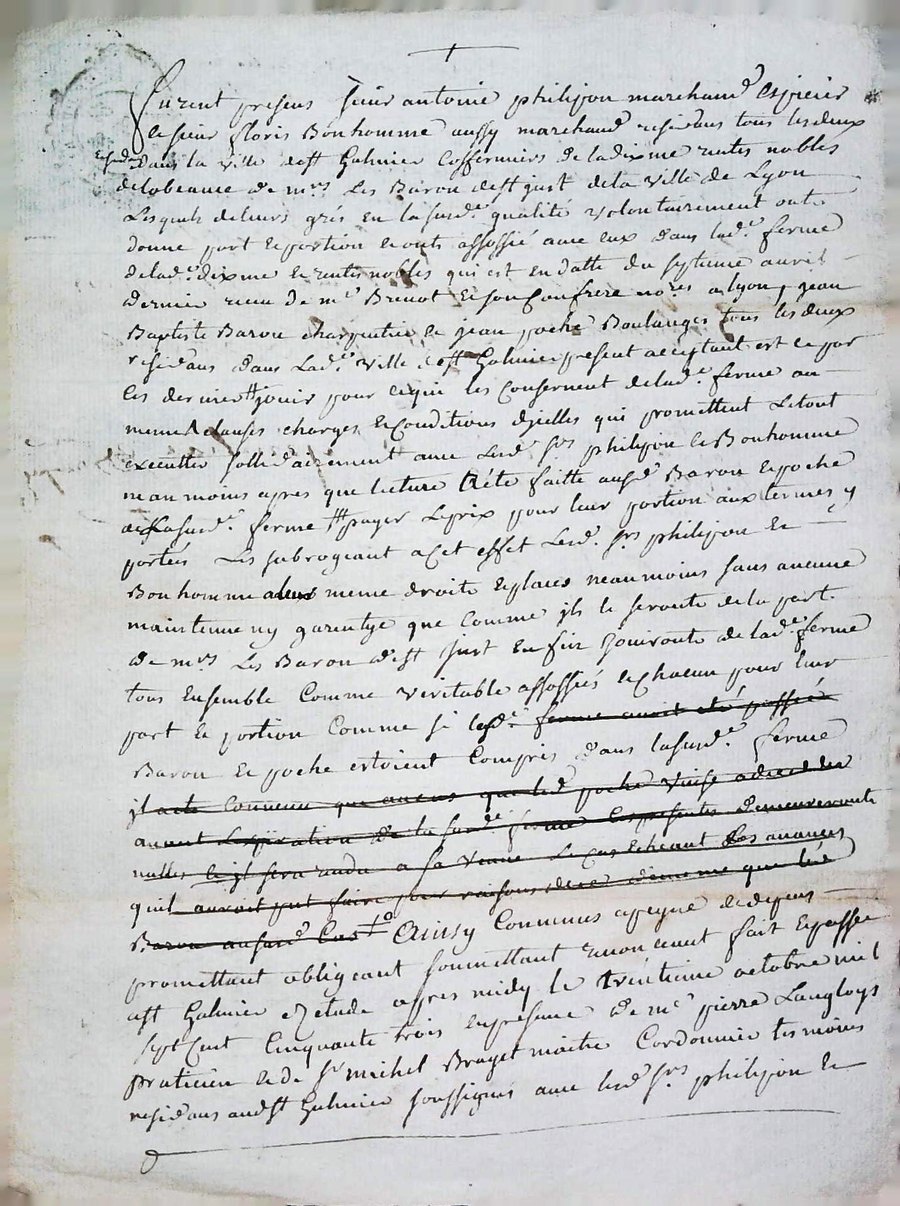 furent presens sieur antoine philipon marchand espicier
le sieur floris Bonhomme aussy marchand residans tous lesdeux
dans la ville de st Galmier cofermiers deladixme rentes nobles
de mrs Les Baron dest just dela ville de Lyon
Lesquels deleurs grés En lasusde. qualité volontairement onts
donne part Eportion Eonts assossié avec eux dans lade. ferme
delade. dixme Erentes nobles qui est endatte du septieme avril
dernier receu de me. Brenot Eson Confrere nores a lyon, jean
Baptiste Baron charpentier Ee jean poche Boulanger tous lesdeux
residans dans Lade. ville de st Galmier present acceptant est ce par
les derniers jouir pour cequi les Consernent delade. ferme au
meme clauses charges Econditions dicelles qui promettent Letout
executter sollidairement avec Lesd. srs philipon Ee Bonhomme
neanmoins apres que lecture a été faitte ausd. Baron Epoche
delasusde. ferme payer Leprix pour leur portion aux termes y
portés Les subrogeant acet effet Lesd. srs philipon Ee
Bonhomme aleurs meme droits Eplaces neanmoins sans aucune
maintenue ny garentye que Comme ils le seronts dela part
de mrs Les Baron dest just Enfin jouironts de lade. ferme
tous Ensemble Comme veritable assossiés Echacun pour leur
part Ee portion Comme si lesd. ferme avoit eté passée
Baron Ee poche estoient Compris dans lasusde. ferme
jl acte Convenu que aucas que led. poche
avant Lexpiration de la susde. ferme Lespresentes demeureronts
nulles
quil auroit put faire pour raisons dicelle meme que led.
Baron ausurd. Cas Ainsy Convenus apeyne Eedepens
promettant obligeant soumettant renoncent fait Epassé
ast Galmier Eetude apres midy le trentieme octobre mil
sept Cent Cinquante trois enpresence de me. pierre Langloys
praticien Ee de sr michel Braget maitre Cordonnier tesmoins
residans audst Galmier soussignés avec lesd. srs philipon Ee